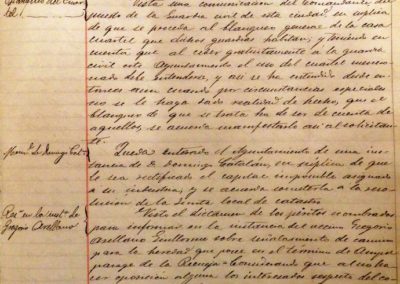 Vista una comunicación del Comandante del
puesto de la Guardia civil de esta ciudad, en súplica
de que se proceda al blanqueo general de la casa
cuartel que dichos guardias habitan; y teniendo en
cuenta que al ceder gratuitamente a la guardia
civil este Ayuntamiento el uso del cuartel mencio-
nado debe entenderse, y así se ha entendido desde en-
tonces aun cuando por circunstancias especiales
no se le haya dado realidad de hecho, que el
blanqueo de que se trata ha de ser de cuenta de
aquellos, se acuerda manifestarlo así al solicitante.
Queda enterado el Ayuntamiento de una ins-
tancia de D. Domingo Catalán, en súplica de que
le sea rectificado el capital imponible asignado
a su industria, y se acuerda remitirla a la reso-
lución de la Junta local de catastro.
Visto el dictamen de los peritos nombrados
para informar en la instancia del vecino Gregorio
Arellano Guillermo sobre señalamiento de camino
para la heredad que posee en el término de
parage de la Considerando que al no ha-
ber oposición alguna los interesados respecto del ca-
Gregorio Arellano